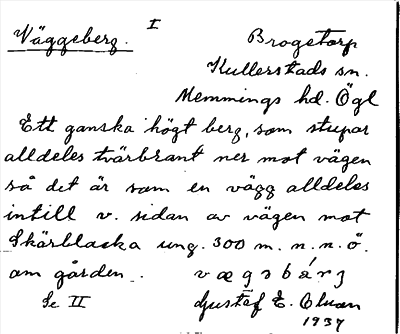 Väggeberg. I Brogetorp
Kullerstads sn.
Memmings hd. Ögl
Ett ganska högt berg, som stupar
alldeles tvärbrant ner mot vägen
så det är som en vägg alldeles
intill v. sidan av vägen mot
Skärblacka ung. 300 m. n. n. ö.
om gården.
Se II Gustaf E.
1937